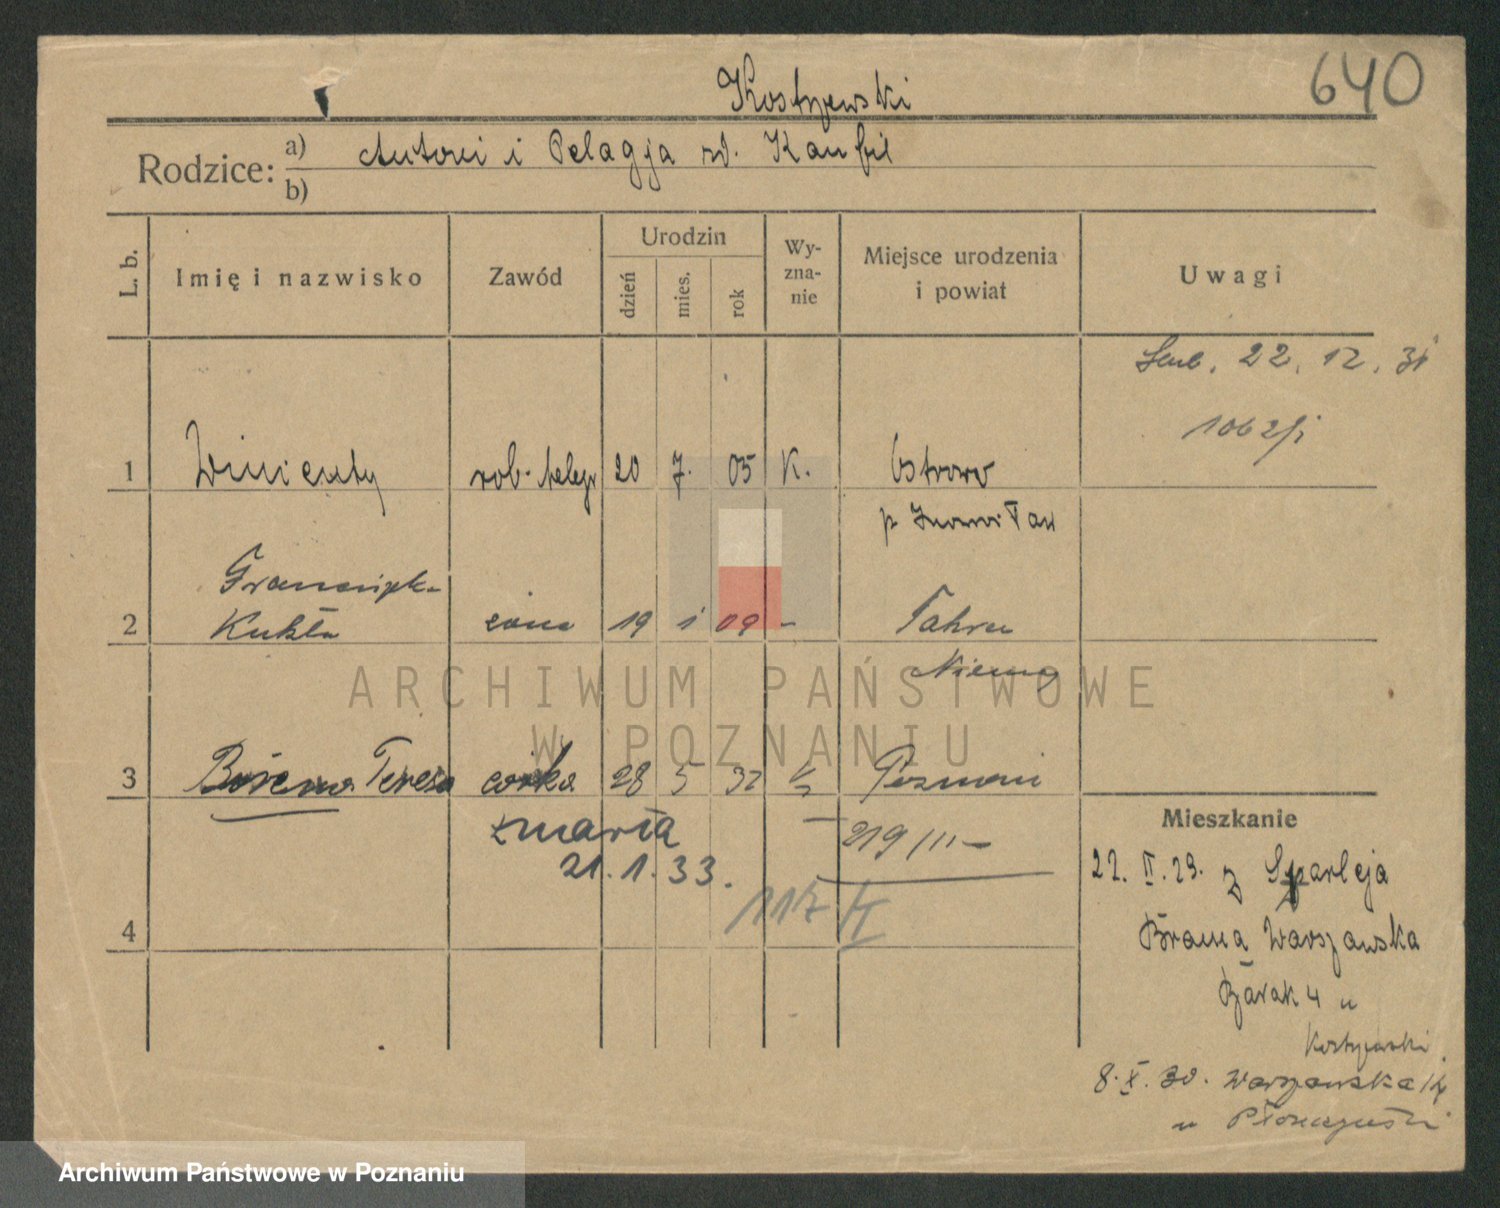 640
Kostrzewski
Rodzice: a) Antoni i Pelagja zd. Kaufel
b)
L. b. Imię i nazwisko Zawód Urodzin dzień mies. rok Wy-zna-nie Miejsce urodzenia i powiat Uwagi
22. 12. 31
1 Wincenty rob. telegr 20 7. 05 K. Ostrowo
p Inowrocław
Franciszka
2 żona 19 1 09 -
Niemcy
3 Bożena Teresa córka 28 5 32 k Poznań
zmarła 219/III
21. 1. 33.
117 II
4
Mieszkanie
22. II. 29. z
Brama Warszawska
Barak 4 u
Kostrzewski
8. X. 30. Warszawska
u
ARCHIWUM PAŃSTWOWE
W POZNANIU
Archiwum Państwowe w Poznaniu